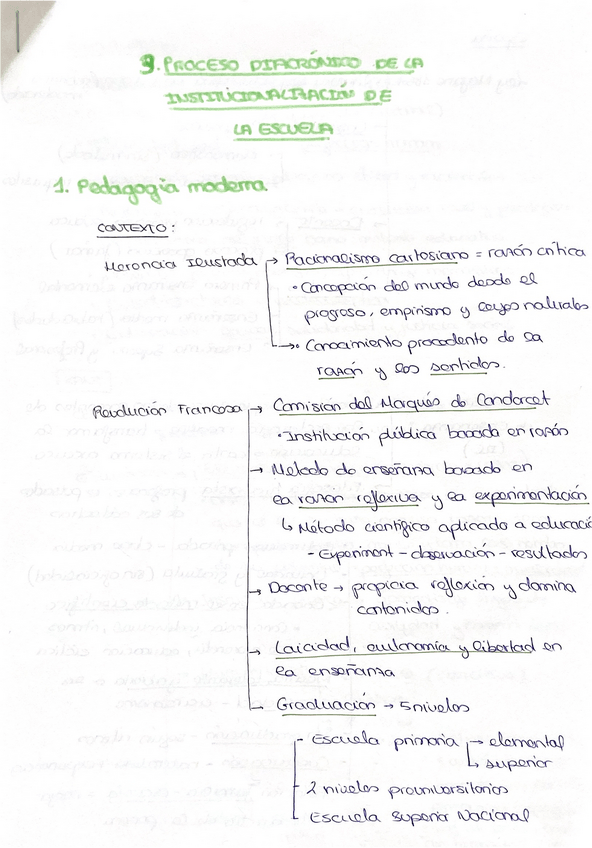 9. PROCESO DIACRÓNICO DE LA
INSTITUCIONALIZACIÓN DE
LA ESCUELA
1. Pedagogía moderna
CONTEXTO:
Herencia Ilustrada → Racionalismo cartesiano = razón crítica
• Concepción del mundo desde el
progreso, empirismo y leyes naturales
→ • Conocimiento procedente de la
razón y los sentidos.
Revolución Francesa → Comisión del Marqués de Condorcet
• Institución pública basada en razón
→ Método de enseñanza basado en
la razón reflexiva y la experimentación
↳ Método científico aplicado a educaci
- Experiment - observación - resultados
→ Docente → propicia reflexión y domina
contenidos.
→ Laicidad, autonomía y libertad en
la enseñanza
Graduación → 5 niveles
- Escuela primaria → elemental
↳ superior
- 2 niveles preuniversitarios
- Escuela Superior Nacional